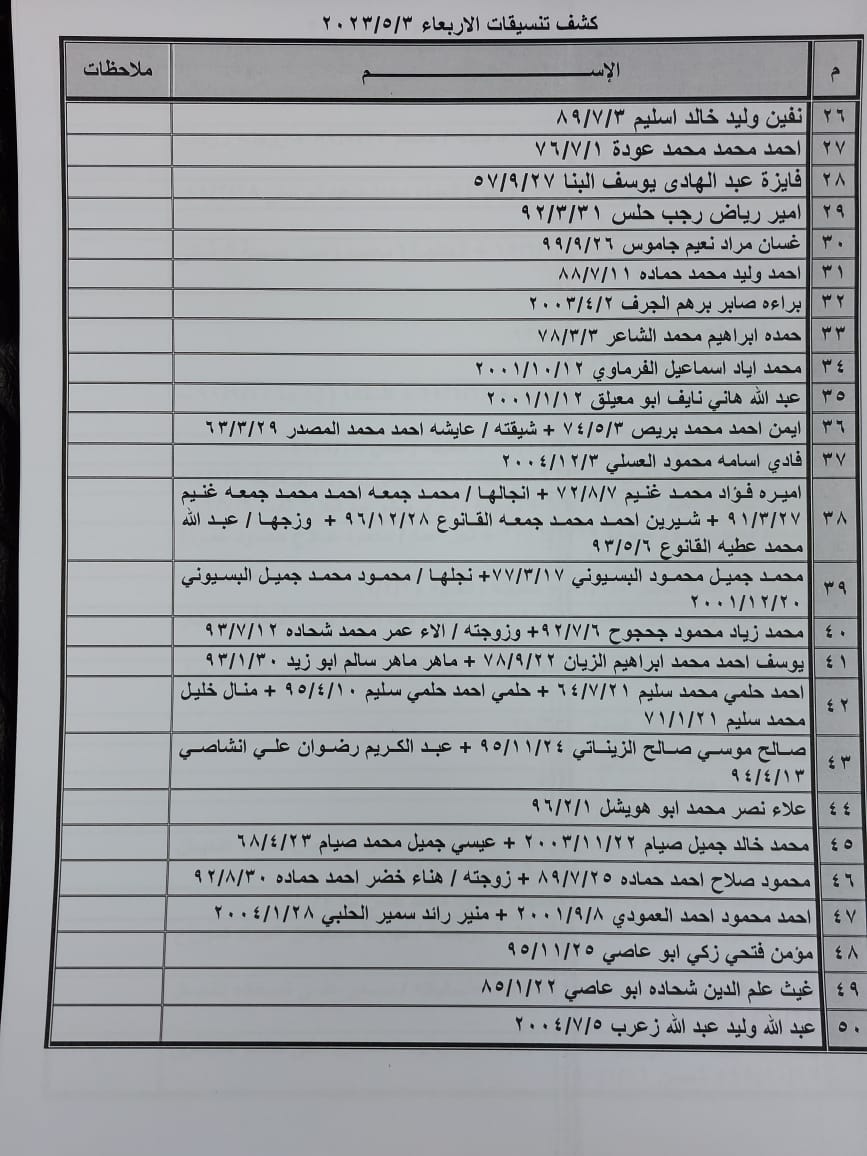 كشف تنسيقات الاربعاء ٢٠٢٣/٥/٣
م الإســــــم ملاحظات
٢٦ نفين وليد خالد اسليم ٨٩/٧/٣
٢٧ احمد محمد محمد عودة ٧٦/٧/١
٢٨ فايزة عبد الهادى يوسف البنا ٥٧/٩/٢٧
٢٩ امير رياض رجب حلس ٩٢/٣/٣١
٣٠ غسان مراد نعيم جاموس ٩٩/٩/٢٦
٣١ احمد وليد محمد حماده ٨٨/٧/١١
٣٢ براءه صابر برهم الجرف ٢٠٠٣/٤/٢
٣٣ حمده ابراهيم محمد الشاعر ٧٨/٣/٣
٣٤ محمد اياد اسماعيل الفرماوي ٢٠٠١/١٠/١٢
٣٥ عبد الله هاني نايف ابو معيلق ٢٠٠١/١/١٢
٣٦ ايمن احمد محمد بريص ٧٤/٥/٣ + شيقته / عايشه احمد محمد المصدر ٦٣/٣/٢٩
٣٧ فادي اسامه محمود العسلي ٢٠٠٤/١٢/٣
٣٨ اميره فؤاد محمد غنيم ٧٢/٨/٧ + انجالها / محمد جمعه احمد محمد جمعه غنيم
٩١/٣/٢٧ + شيرين احمد محمد جمعه القانوع ٩٦/١٢/٢٨ + وزجها / عبد الله
محمد عطيه القانوع ٩٣/٥/٦
٣٩ محمد جميل محمود البسيوني ٧٧/٣/١٧+ نجلها / محمود محمد جميل البسيوني
٢٠٠١/١٢/٢٠
٤٠ محمد زياد محمود جحجوح ٩٢/٧/٦+ وزوجته / الاء عمر محمد شحاده ٩٣/٧/١٢
٤١ يوسف احمد محمد ابراهيم الزيان ٧٨/٩/٢٢ + ماهر ماهر سالم ابو زيد ٩٣/١/٣٠
٤٢ احمد حلمي محمد سليم ٦٤/٧/٢١ + حلمي احمد حلمي سليم ٩٥/٤/١٠ + منال خليل
محمد سليم ٧١/١/٢١
٤٣ صالح موسي صالح الزيناتي ٩٥/١١/٢٤ + عبد الكريم رضوان علي انشاصي
٩٤/٤/١٣
٤٤ علاء نصر محمد ابو هويشل ٩٦/٢/١
٤٥ محمد خالد جميل صيام ٢٠٠٣/١١/٢٢ + عيسي جميل محمد صيام ٦٨/٤/٢٣
٤٦ محمود صلاح احمد حماده ٨٩/٧/٢٥ + زوجته / هناء خضر احمد حماده ٩٢/٨/٣٠
٤٧ احمد محمود احمد العمودي ٢٠٠١/٩/٨ + منير رائد سمير الحلبي ٢٠٠٤/١/٢٨
٤٨ مؤمن فتحي زكي ابو عاصي ٩٥/١١/٢٥
٤٩ غيث علم الدين شحاده ابو عاصي ٨٥/١/٢٢
٥٠ عبد الله وليد عبد الله زعرب ٢٠٠٤/٧/٥